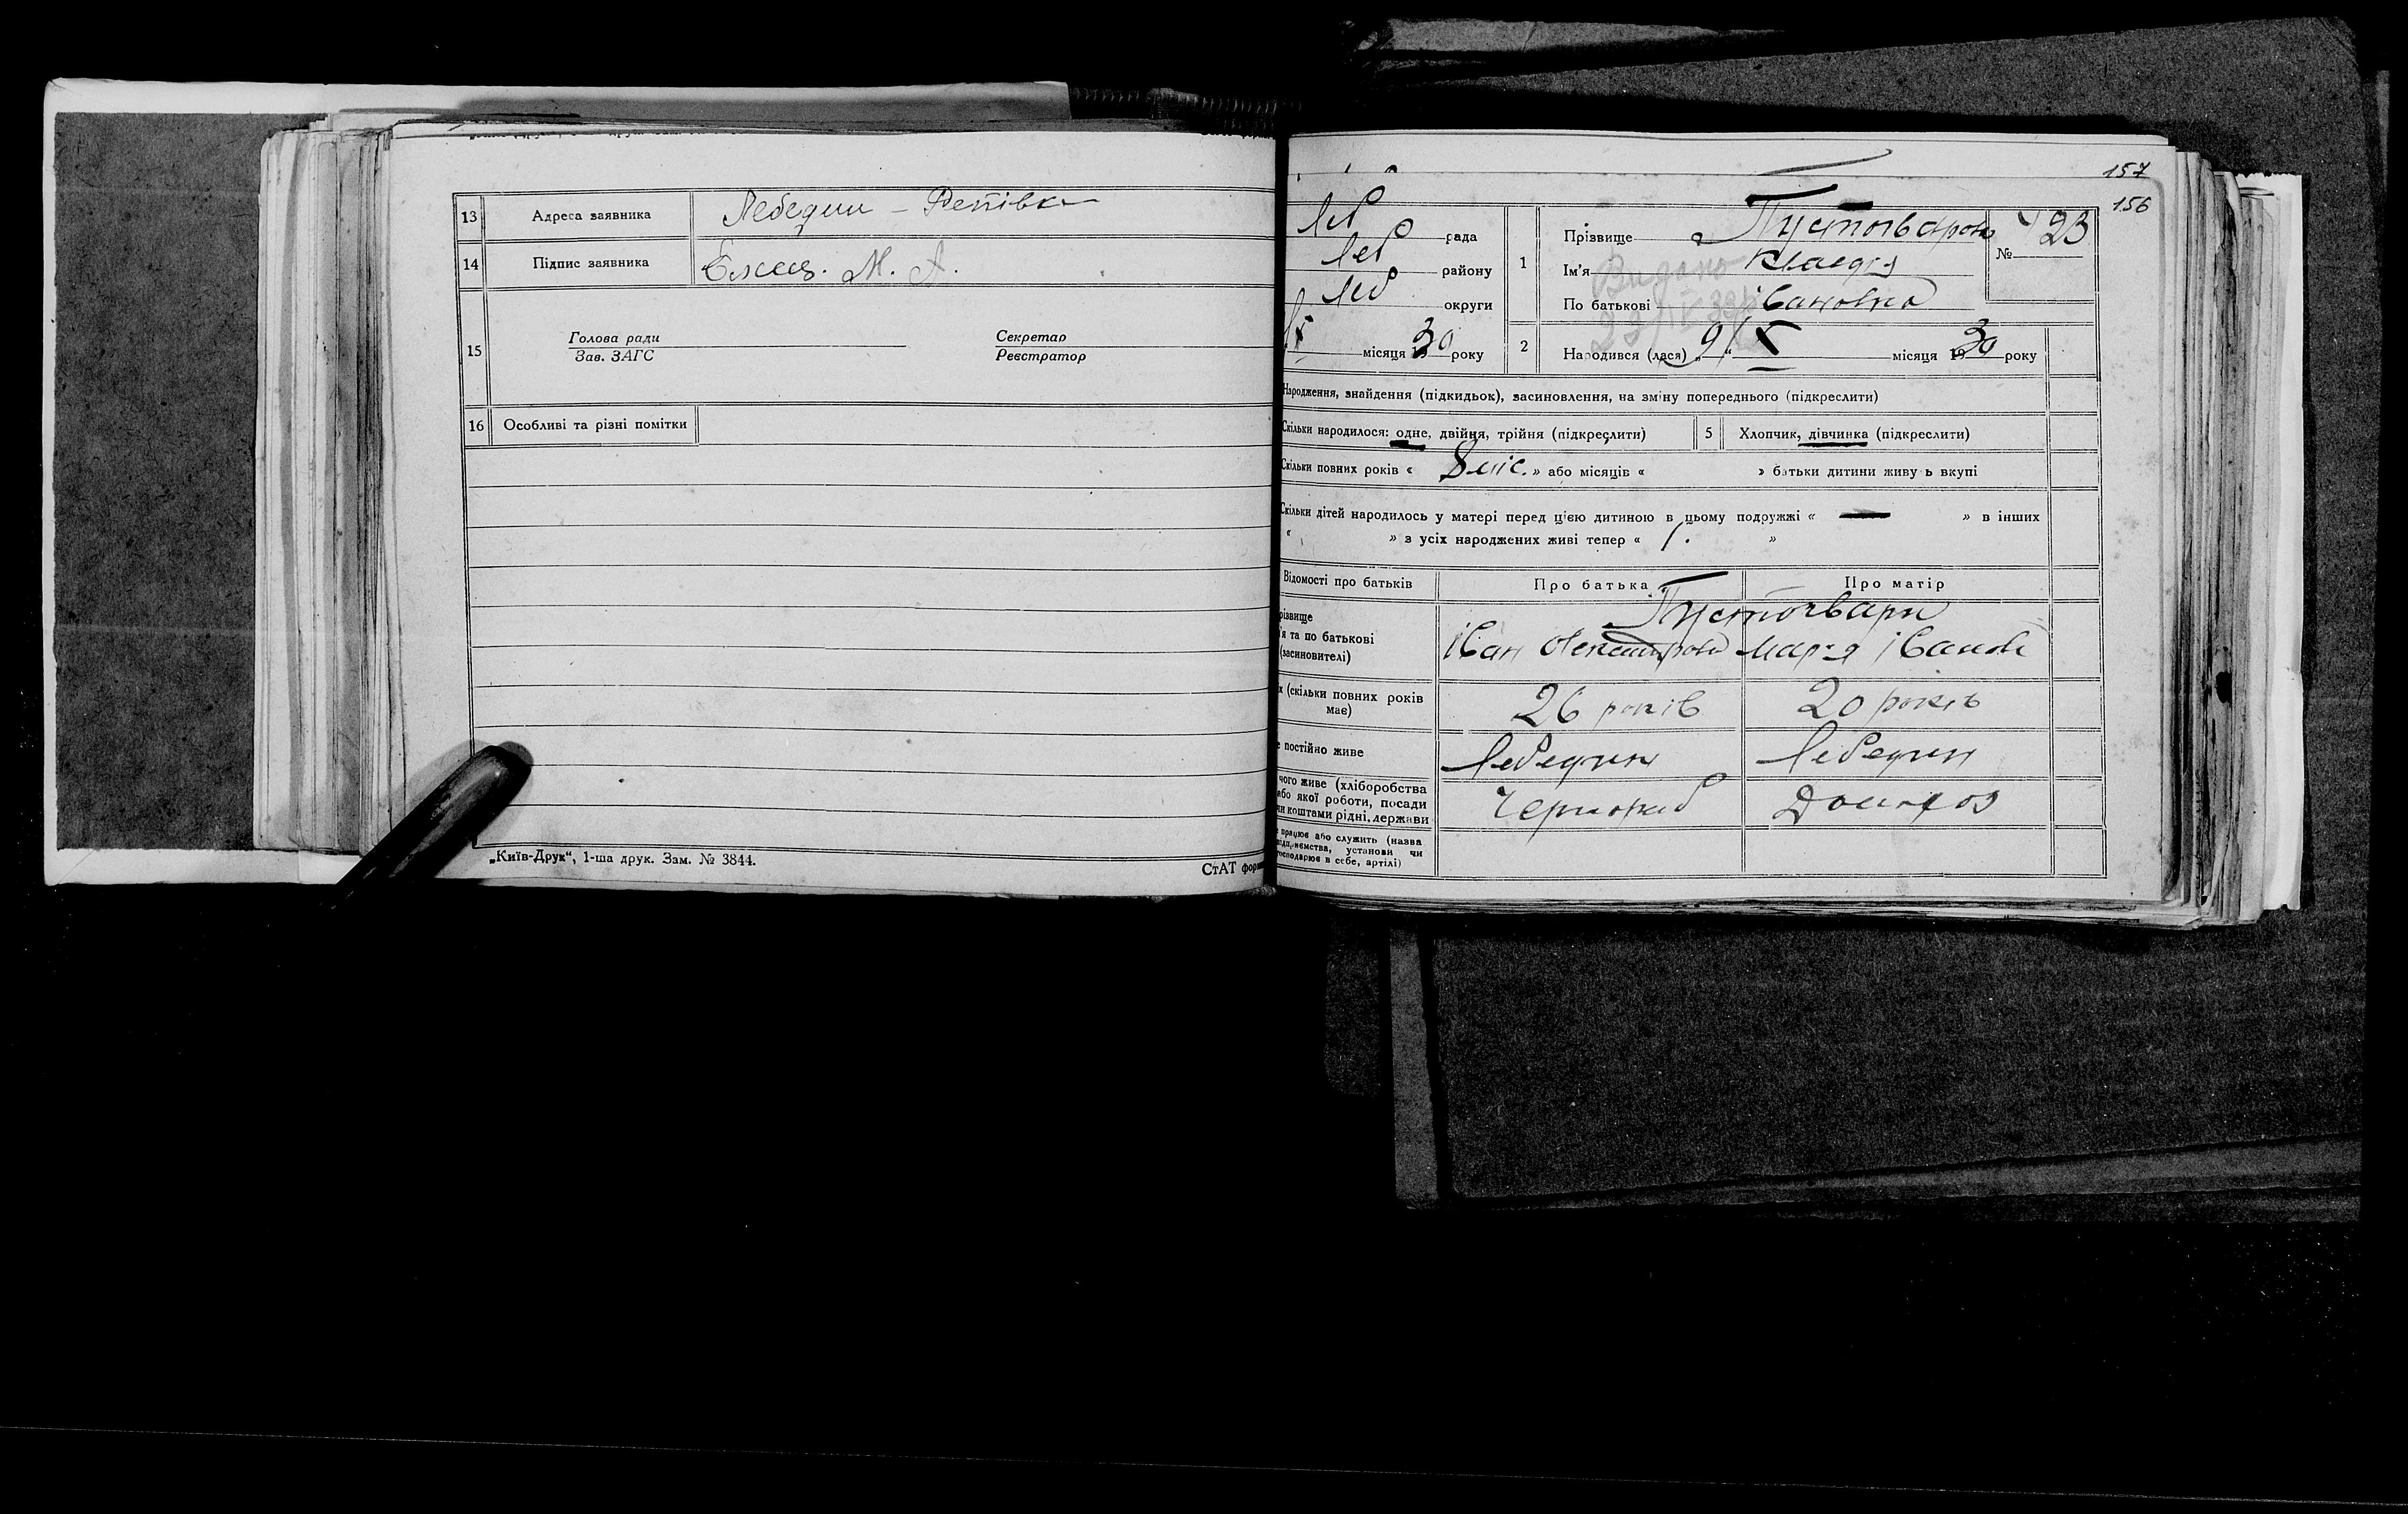 13 Адреса заявника Лебедин – Репівка
14 Підпис заявника М. А.
15 Голова ради Секретар
Зав. ЗАГС Реєстратор
16 Особливі та різні помітки
„Київ-Друк“, 1-ша друк. Зам. № 3844.
СтАТ форм
157
156
Леб рада
Леб району
Леб округи
місяця 1930 року
1 Прізвище
Ім'я Клавдія
По батькові Івановна
№ 23
Видано
2 Народився (лася) „9“ X місяця 1930 року
Народження, знайдення (підкидьок), засиновлення, на зміну попереднього (підкреслити)
Скільки народилося: одне, двійня, трійня (підкреслити) 5 Хлопчик, дівчинка (підкреслити)
Скільки повних років « 8 міс. » або місяців « » батьки дитини живуь вкупі
Скільки дітей народилось у матері перед цією дитиною в цьому подружжі « — » в інших
« » з усіх народжених живі тепер « 1. »
Відомості про батьків Про батька Про матір
різвище
я та по батькові
(засиновителі)
Іван Марія Іванов
к (скільки повних років має) 26 років 20 років
е постійно живе Лебедин Лебедин
чого живе (хліборобства
або якої роботи, посади
чи коштами рідні, держави
Чорнороб Домогос
е працює або служить (назва
підприємства, установи чи
господарює в себе, артілі)